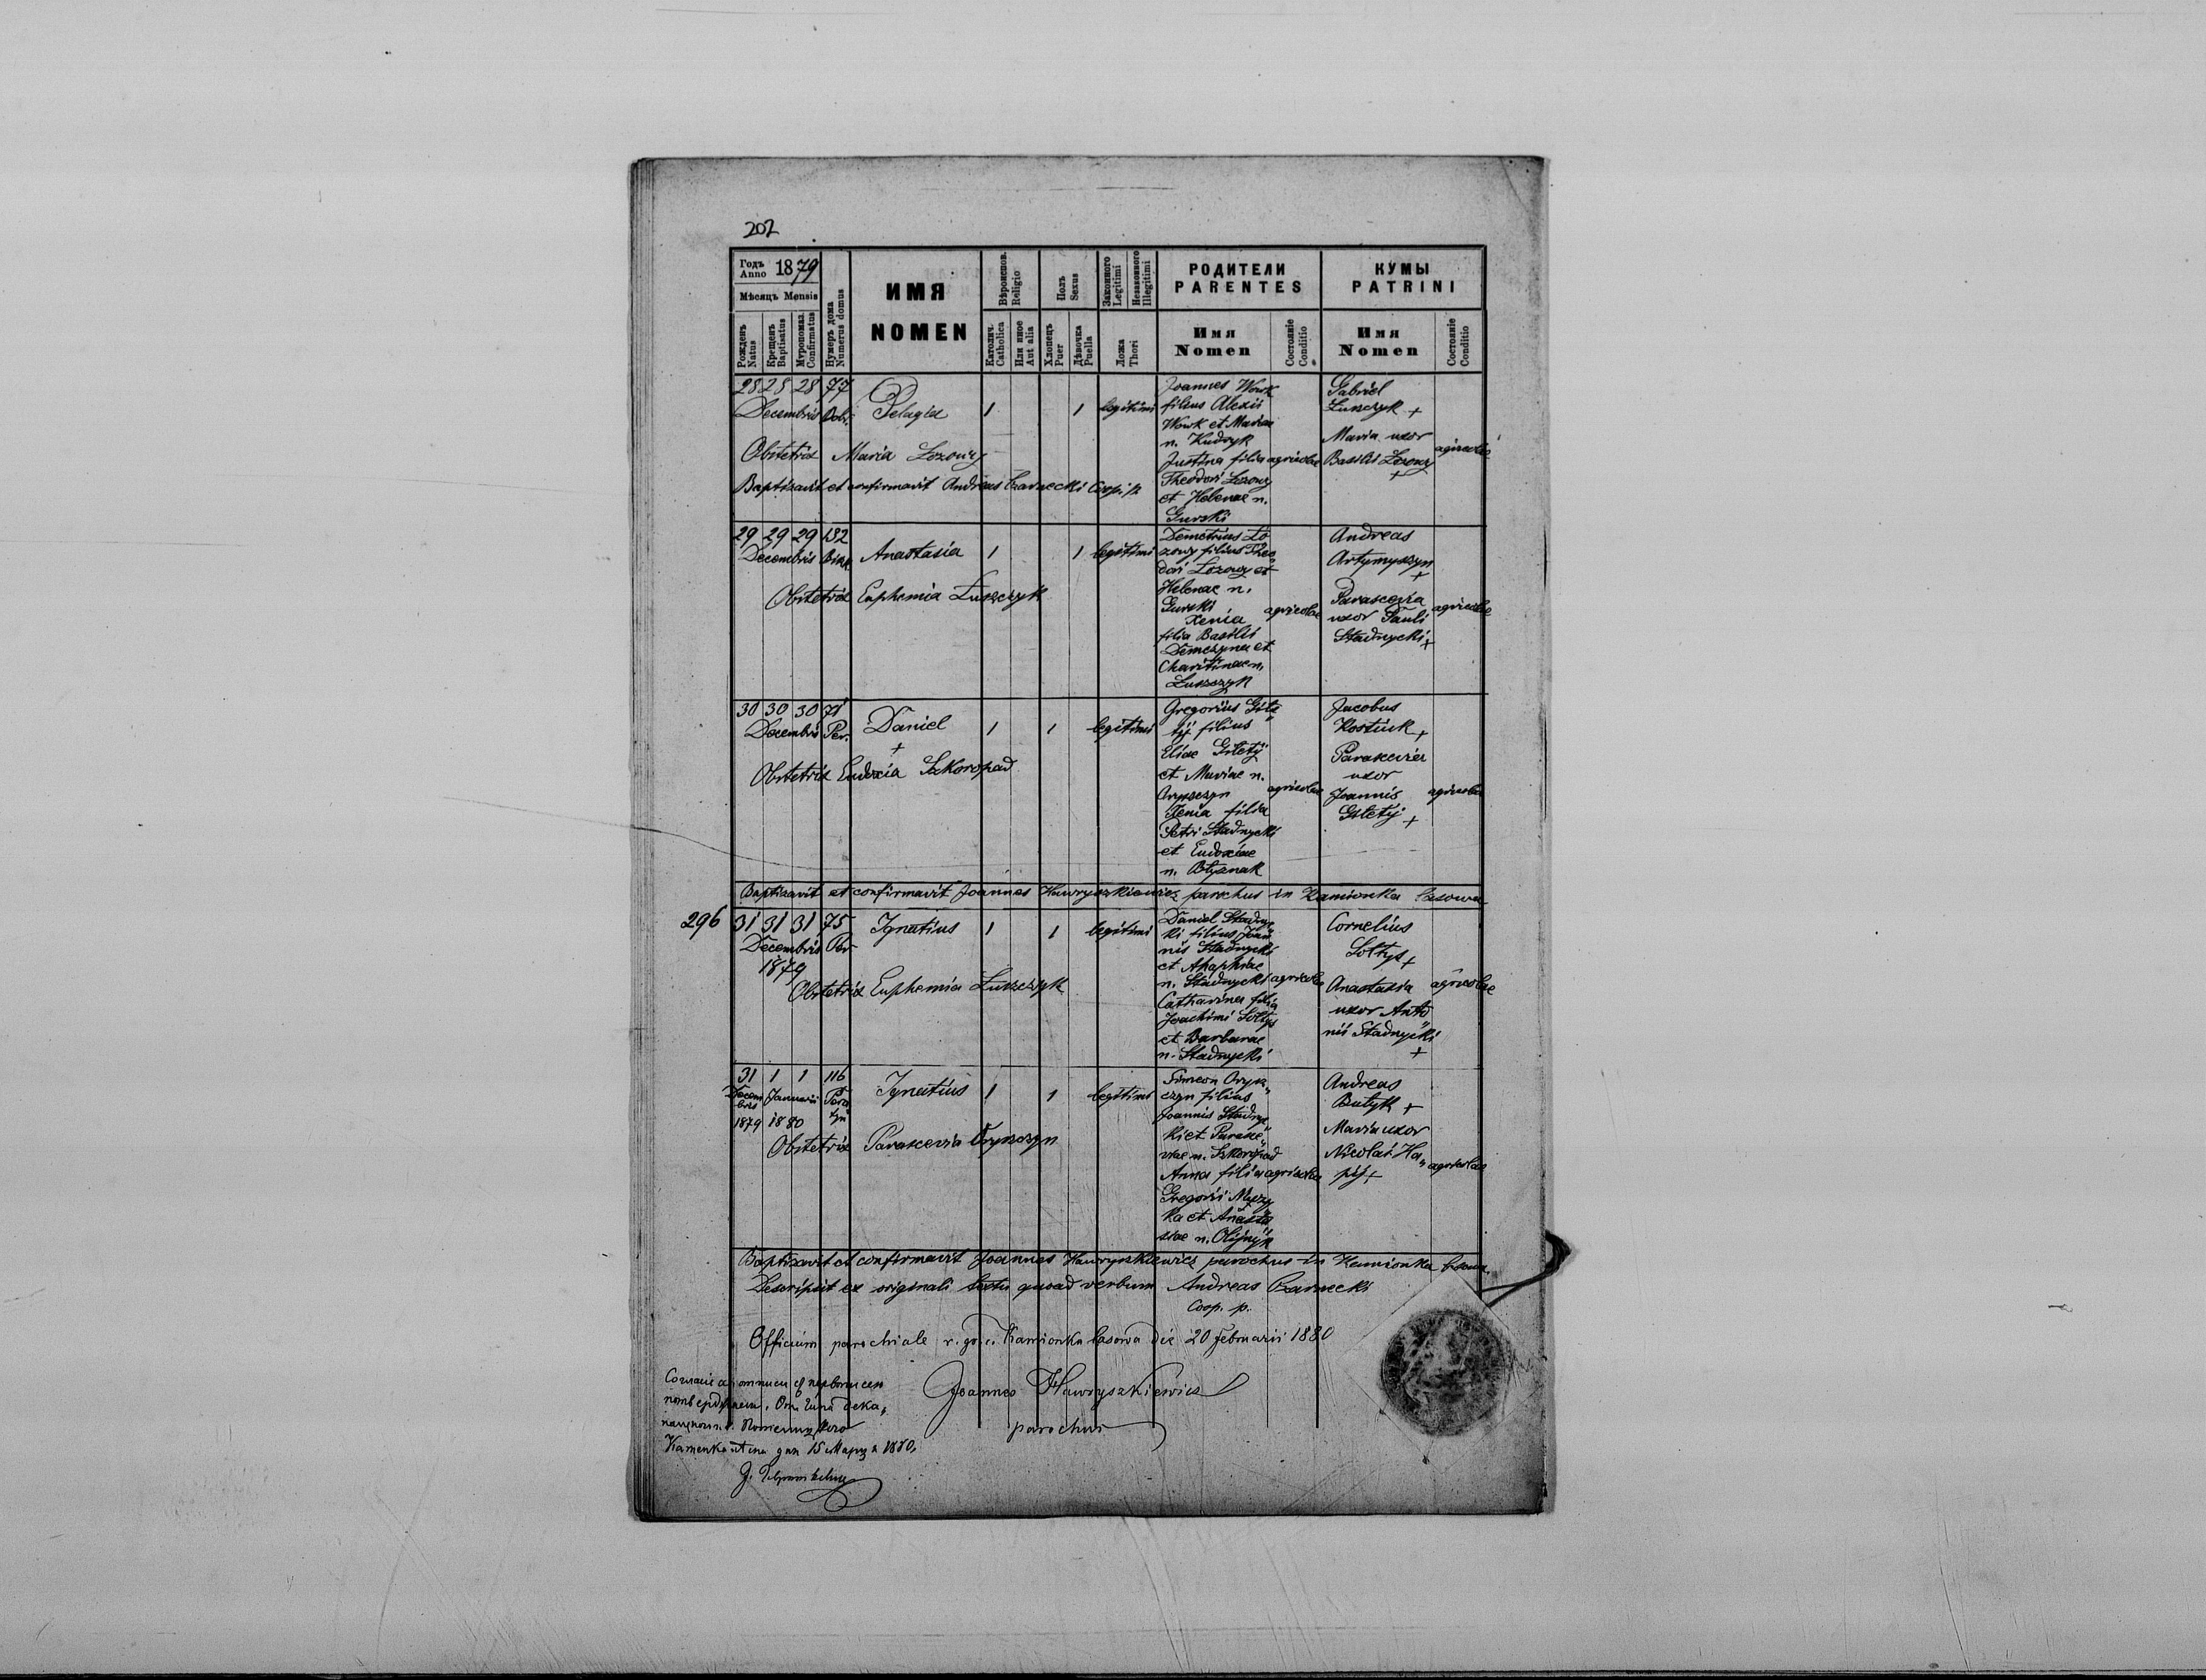 202
Годъ Anno 1879
Мѣсяцъ Mensis
Рожденъ Natus
Крещенъ Baptisatus
Мѵропомаз. Confirmatus
Нумеръ дома Numerus domus
ИМЯ
NOMEN
Вѣроиспов. Religio
Католич. Catholica
Или иное Aut alia
Полъ Sexus
Хлопецъ Puer
Дѣвочка Puella
Законного Legitimi
Незаконного Illegitimi
Ложа Thori
РОДИТЕЛИ
PARENTES
Имя Nomen
Состояніе Conditio
КУМЫ
PATRINI
Имя Nomen
Состояніе Conditio
28 28 28 77
Decembris
Pelagia 1 1 legitimi
Joannes Wowk
filius Alexii
Wowk et Mariae
n. Kudryk
Justina filia agricolae
Theodori Lozowy
et Helenae n.
Gurski
Gabriel
Łuszczyk +
Maria uxor
Basilii Lozowy +
agricolae
Obstetrix Maria Lozowy
Baptisavit et confirmavit Andreas Czarnecki Coop. p.
29 29 29 132
Decembris
Anastasia 1 1 legitimi
Demetrius Lo
zowy filius Theo
dori Lozowy et
Helenae n.
Gurski agricolae
Xenia
filia Basilii
Demczyna et
Charitinae n.
Łuszczyk
Andreas
Artymyszyn +
Parascevia
uxor Pauli
Stadnycki +
agricolae
Obstetrix Euphemia Łuszczyk
30 30 30 71
Decembris Per.
Daniel 1 1 legitimi
+
Gregorius Gile
tij filius
Eliae Giletij
et Mariae n.
Oryszczyn agricolae
Xenia filia
Petri Stadnycki
et Eudoxiae
n.
Jacobus
Kostiuk +
Parascevia
uxor
Joannis
Giletij +
agricolae
Obstetrix Eudoxia Szkoropad
Baptisavit et confirmavit Joannes Hawryszkiewicz parochus in Kamionka lasowa
296 31 31 31 75
Decembris Per
1879
Ignatius 1 1 legitimi
Daniel Stadnyc
ki filius Joan
nis Stadnycki
et Ahaphiae
n. Stadnycki agricolae
Catharina filia
Joachimi Sołtys
et Barbarae
n. Stadnycki
Cornelius
Sołtys +
Anastasia
uxor Anto
nii Stadnycki +
agricolae
Obstetrix Euphemia Łuszczyk
31 1 1 116
Decem bris Januarii
1879 1880
Ignatius 1 1 legitimi
Simeon Orysz
czyn filius
Joannis Stadnyc
ki et Parasce
viae n. Szkoropad
Anna filia agricolae
Gregorii Muzy
ka et Anasta
siae n. Olijnyk
Andreas
Batyk +
Maria uxor
Nicolai Ha
pij +
agricolae
Obstetrix Parascevia Oryszczyn
Baptisavit et confirmavit Joannes Hawryszkiewicz parochus in Kamionka lasowa.
Descripsit ex originali textu quoad verbum Andreas Czarnecki
Coop. p.
Officium parochiale r. gr. c. Kamionka lasowa die 20 Februarii 1880
Joannes Hawryszkiewicz
parochus
15 Марца 1880